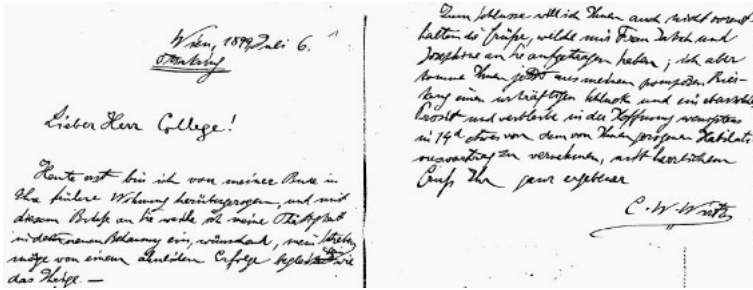 Wien, 1899 Juli 6.
Ottakring
Lieber Herr College!
Heute erst bin ich von meiner Bude in
Ihre frühere Wohnung herübergezogen, und mit
diesem Briefe an Sie weihe ich meine Thätigkeit
in der neuen Behausung ein, wünschend, mein Streben
möge von einem ähnlichen Erfolge begleitet sein wie
das Ihrige. —
Zum Schlusse will ich Ihnen auch nicht vorent-
halten die Grüße, welche mir Frau und
Josephine an Sie aufgetragen haben; ich aber
komme Ihnen jetzt aus meinem pompösen Ries-
ling einen urkräftigen Schluck und ein ebensolches
Prosit und verbleibe in der Hoffnung wenigstens
in 14d etwas von dem von Ihnen gezogenen Habilitati-
onsvortrag zu vernehmen, mit herzlichem
Gruß Ihr ganz ergebener
C. W. Wirtz